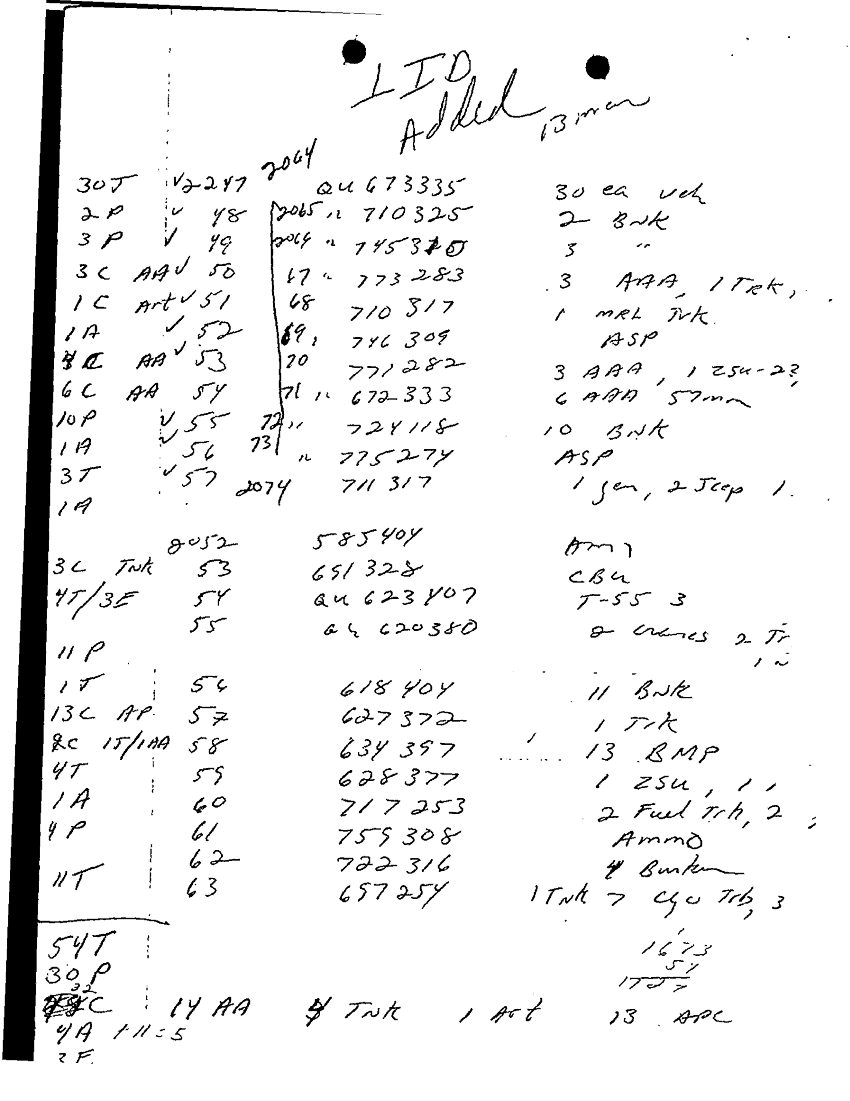 1 ID
Added 13 mar
2064
30T √2247 QU 673335 30 ea veh
2 P √ 48 2065 " 710325 2 BNK
3 P √ 49 " 3 "
3C AA √ 50 67 " 773283 3 AAA, 1 Trk,
1 C Art √ 51 68 710317 1 MRL Trk
1A √ 52 69, 746309 ASP
C AA √ 53 70 771282 3 AAA, 1 ZSU-23,
6 C AA 54 71 " 672333 6 AAA 57mm
10P √ 55 72 " 724118 10 BNK
1A √ 56 73 " 775274 ASP
3T √ 57 2074 711317 1 gen, 2 Jeep 1.
1A
2052 585404
3C TNK 53 651328 CBU
4T/3E 54 QU 623407 T-55 3
55 QU 620380 2 cranes 2 Tr
11 P
1T 56 618404 11 BNK
13C AP 57 627372 1 Trk
2C 1T/1AA 58 634397 13 BMP
4T 59 628377 1 ZSU, 1
1A 60 717253 2 Fuel Trk, 2
4 P 61 759308 Ammo
62 722316 4 Bunker
11T 63 657254 1 TNK 7 Cgo Trk, 3
54T 1673
30 P 54
22 1727
C 14 AA 4 TNK 1 Art 13 APC
4A +1=5
3E